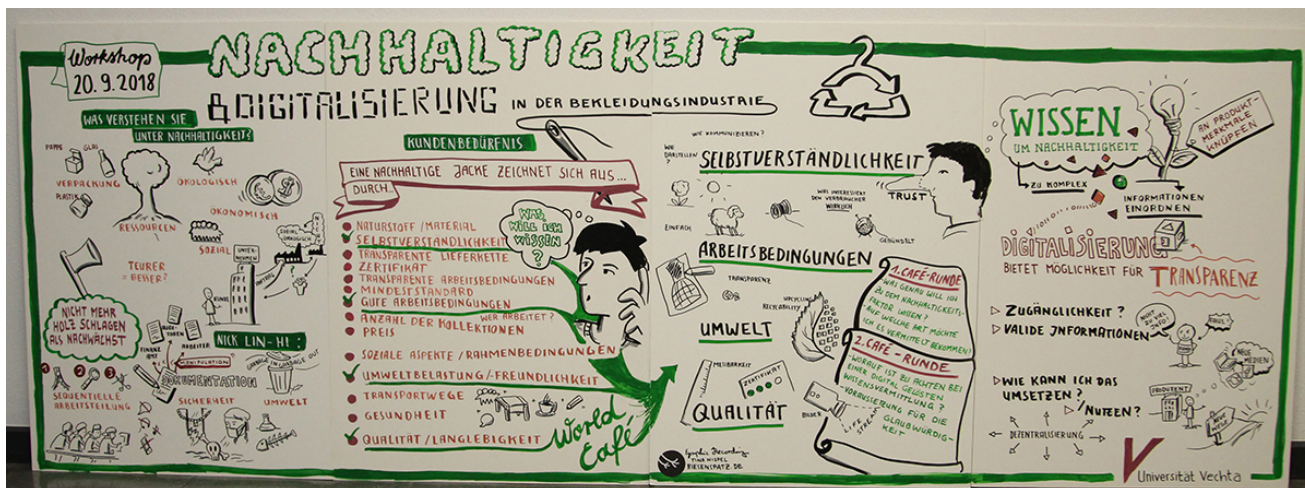 Workshop
20.9.2018
NACHHALTIGKEIT
& DIGITALISIERUNG IN DER BEKLEIDUNGSINDUSTRIE
WAS VERSTEHEN SIE
UNTER NACHHALTIGKEIT?
PAPPE
GLAS
VERPACKUNG
PLASTIK
ÖKOLOGISCH
RESSOURCEN
ÖKONOMISCH
SOZIAL
TEURER
= BESSER?
UNTER-
NEHMEN
KUNDE
NICHT MEHR
HOLZ SCHLAGEN
ALS NACHWÄCHST
NICK LIN-HI:
GARBAGE IN GARBAGE OUT
FINANZAMT
ARBEITER
MANIPULATION
DOKUMENTATION
1 2 3
SEQUENTIELLE
ARBEITSTEILUNG
SICHERHEIT
UMWELT
KUNDENBEDÜRFNIS
EINE NACHHALTIGE JACKE ZEICHNET SICH AUS...
DURCH...
NATURSTOFF/MATERIAL
SELBSTVERSTÄNDLICHKEIT
TRANSPARENTE LIEFERKETTE
ZERTIFIKAT
TRANSPARENTE ARBEITSBEDINGUNGEN
MINDESTSTANDARD
GUTE ARBEITSBEDINGUNGEN
WER ARBEITET?
ANZAHL DER KOLLEKTIONEN
PREIS
SOZIALE ASPEKTE/RAHMENBEDINGUNGEN
UMWELTBELASTUNG/-FREUNDLICHKEIT
TRANSPORTWEGE
GESUNDHEIT
QUALITÄT/LANGLEBIGKEIT
WAS
WILL ICH
WISSEN
?
World
Café
WIE KOMMUNIZIEREN?
WIE
DARSTELLEN
?
SELBSTVERSTÄNDLICHKEIT
TRUST
EINFACH
WAS INTERESSIERT
DEN VERBRAUCHER
WIRKLICH
GEBÜNDELT
ARBEITSBEDINGUNGEN
TRANSPARENZ
UPCYCLING
RECYCLABILITY
UMWELT
MESSBARKEIT
ZERTIFIKAT
QUALITÄT
BILDER
LIFE
STREAM
1. CAFÉ-RUNDE
WAS GENAU WILL ICH
ZU DEM NACHHALTIGKEITS-
FAKTOR WISSEN?
AUF WELCHE ART MÖCHTE
ICH ES VERMITTELT BEKOMMEN?
2. CAFÉ-RUNDE
-WORAUF IST ZU ACHTEN BEI
EINER DIGITAL GESTÜTZTEN
WISSENSVERMITTLUNG?
-VORAUSSETZUNG FÜR DIE
GLAUBWÜRDIG-
KEIT
Graphic Recording
TINA NISPEL
RIESENSPATZ.DE
WISSEN
UM NACHHALTIGKEIT
AN PRODUKT-
MERKMALE
KNÜPFEN
ZU KOMPLEX
INFORMATIONEN
EINORDNEN
DIGITALISIERUNG
BIETET MÖGLICHKEIT FÜR TRANSPARENZ
ZUGÄNGLICHKEIT?
VALIDE INFORMATIONEN
NICHT
ZU VIEL
INFO!
NEUE
MEDIEN
WIE KANN ICH DAS
UMSETZEN?
NUTZEN?
PRODUZENT
NEUE
WEGE
DEZENTRALISIERUNG
Universität Vechta